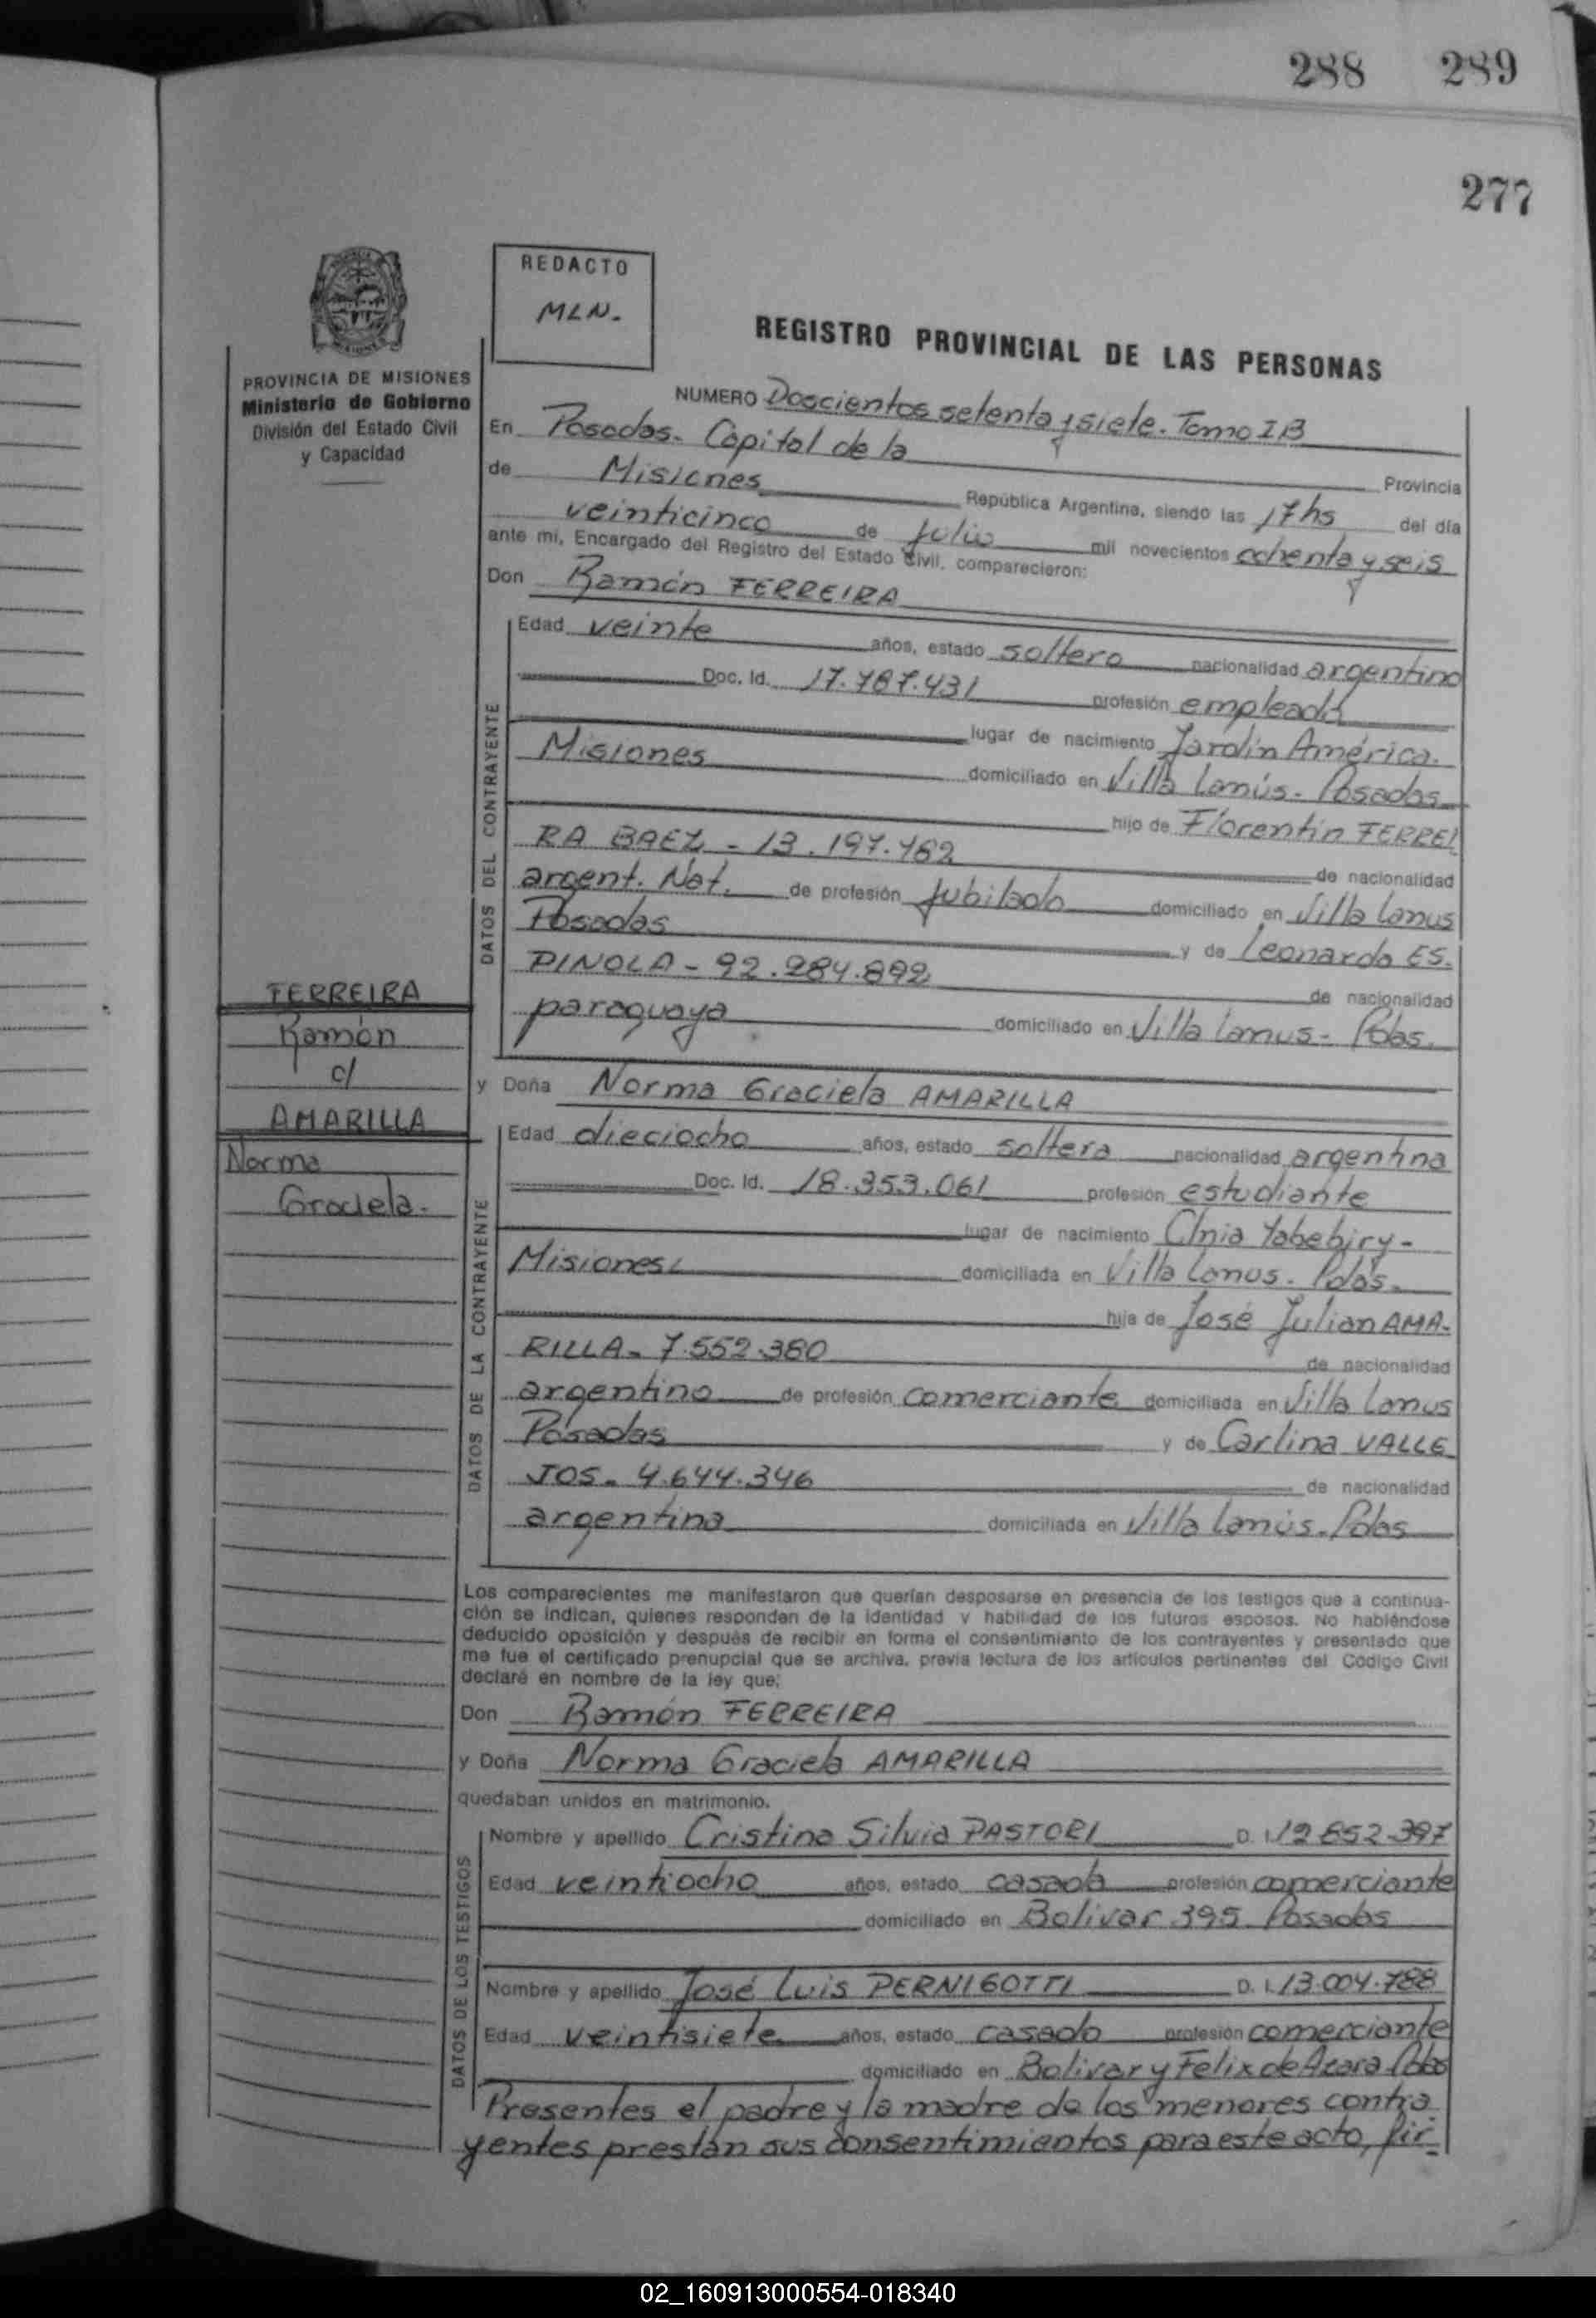 288 289
277
REDACTO
MLN.
PROVINCIA DE MISIONES
Ministerio de Gobierno
División del Estado Civil
y Capacidad
REGISTRO PROVINCIAL DE LAS PERSONAS
NUMERO Doscientos setenta y siete. Tomo I B
En Posadas. Capital de la Provincia
de Misiones República Argentina, siendo las 17 hs del día
veinticinco de julio mil novecientos ochenta y seis
ante mí, Encargado del Registro del Estado Civil, comparecieron:
Don Ramón FERREIRA
DATOS DEL CONTRAYENTE
Edad veinte años, estado soltero nacionalidad argentino
Doc. Id. 17.787.431 profesión empleado
lugar de nacimiento Jardín América.
Misiones domiciliado en Villa Lanús. Posadas
hijo de Florentín FERREI
RA BAEZ - 13.197.462 de nacionalidad
argent. Nat. de profesión jubilado domiciliado en Villa Lanus
Posadas y de Leonarda ES.
PINOLA - 92.284.892 de nacionalidad
paraguaya domiciliado en Villa Lanus - Pdas.
FERREIRA
Ramón
c/
AMARILLA
Norma
Graciela.
y Doña Norma Graciela AMARILLA
DATOS DE LA CONTRAYENTE
Edad dieciocho años, estado soltera nacionalidad argentina
Doc. Id. 18.353.061 profesión estudiante
lugar de nacimiento Clnia Yabebiry -
Misiones domiciliada en Villa Lanus. Pdas.
hija de José Julian AMA-
RILLA - 7.552.380 de nacionalidad
argentino de profesión comerciante domiciliada en Villa Lanus
Posadas y de Carlina VALLE
JOS - 4.644.346 de nacionalidad
argentina domiciliada en Villa Lanús. Pdas
Los comparecientes me manifestaron que querían desposarse en presencia de los testigos que a continua-
ción se indican, quienes responden de la identidad y habilidad de los futuros esposos. No habiéndose
deducido oposición y después de recibir en forma el consentimiento de los contrayentes y presentado que
me fue el certificado prenupcial que se archiva, previa lectura de los artículos pertinentes del Código Civil
declaré en nombre de la ley que:
Don Ramón FERREIRA
y Doña Norma Graciela AMARILLA
quedaban unidos en matrimonio.
DATOS DE LOS TESTIGOS
Nombre y apellido Cristina Silvia PASTORI D. I. 12.652.397
Edad veintiocho años, estado casada profesión comerciante
domiciliado en Bolivar 395 Posadas
Nombre y apellido José Luis PERNIGOTTI D. I. 13.004.788
Edad veintisiete años, estado casado profesión comerciante
domiciliado en Bolivar y Felix de Azara Pdas
Presentes el padre y la madre de los menores contra
yentes prestan sus consentimientos para este acto, fir-
02_160913000554-018340